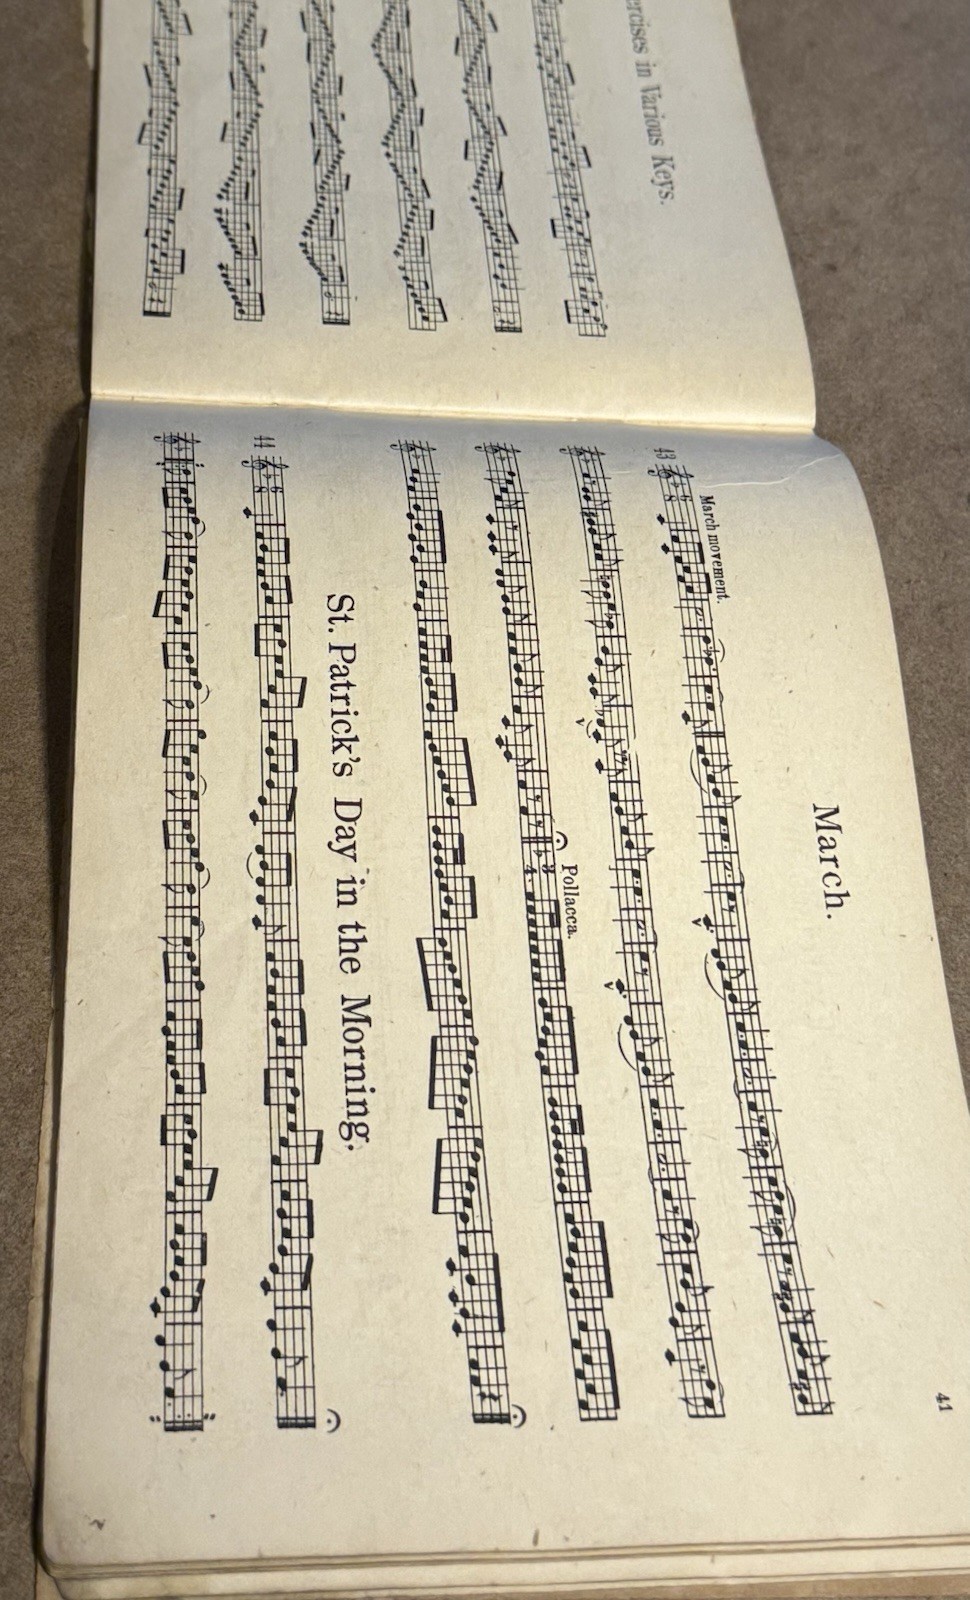 ercises in Various Keys.
41
March.
43
March movement.
6
8
Pollacca.
3
4
St. Patrick's Day in the Morning.
44
6
8